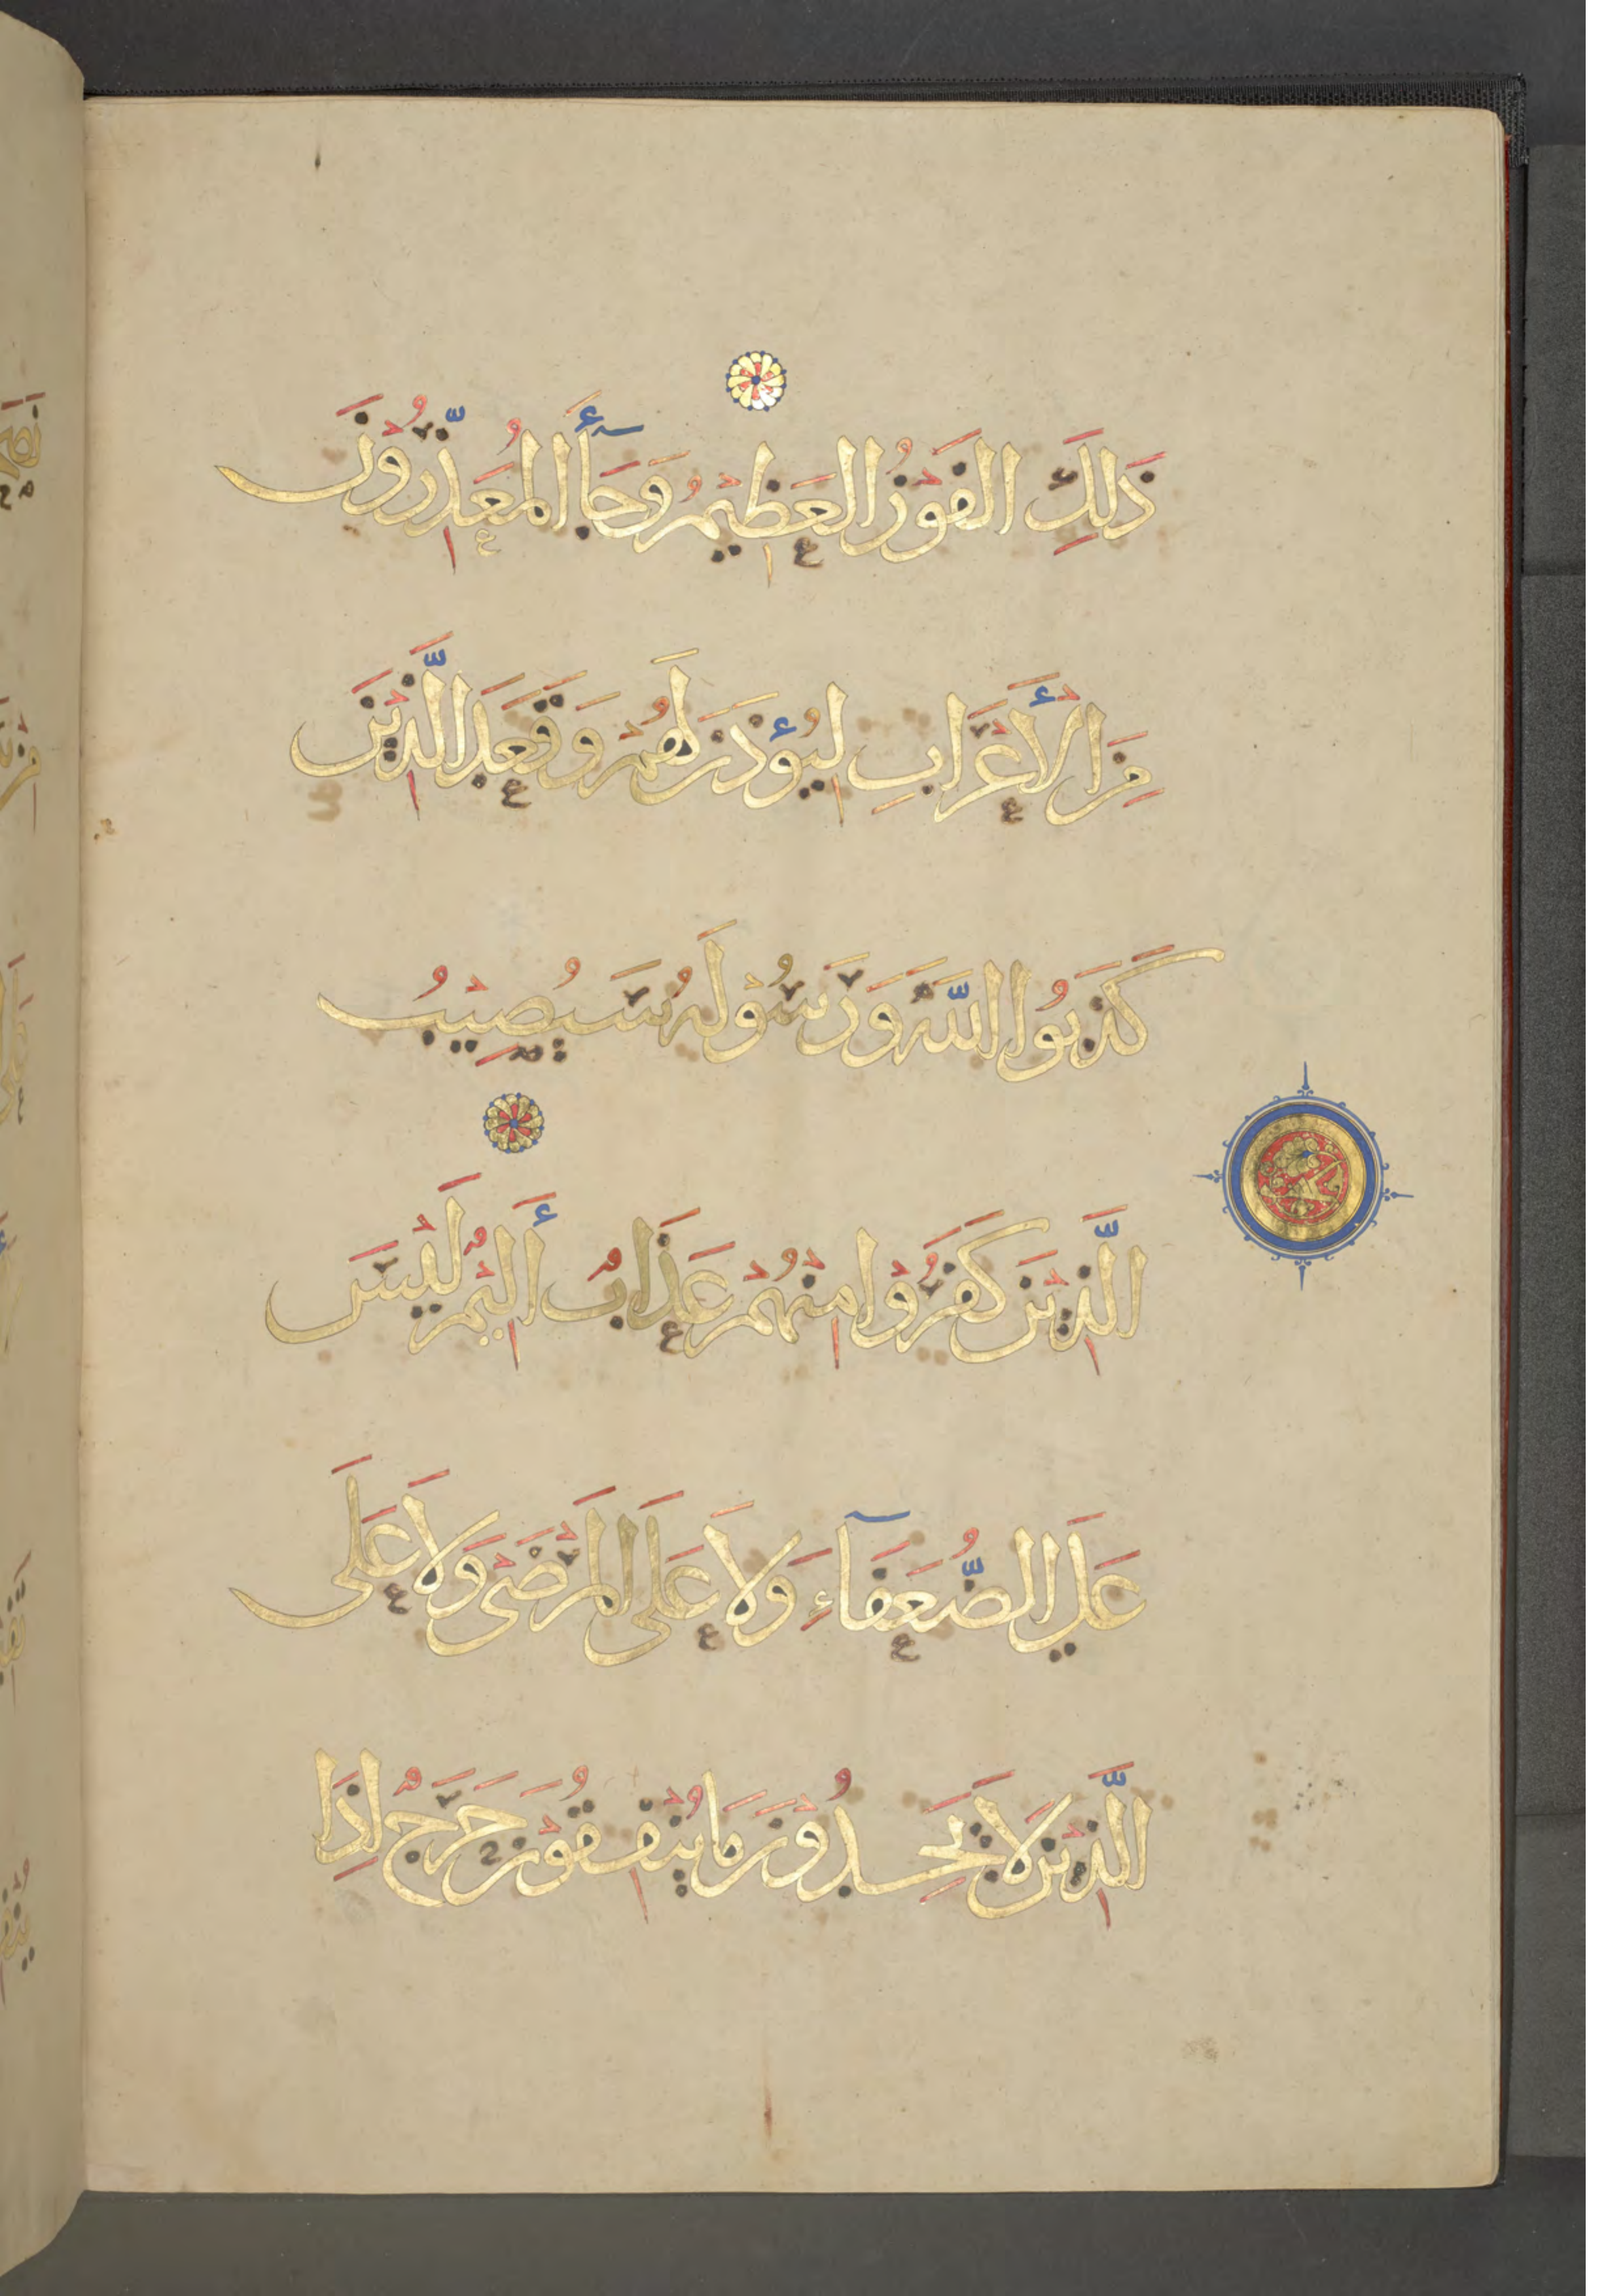 ذَلِكَ الفَوْزُ العَظِيْمُ وَجَآءَ المُعَذِّرُوْنَ
مِنَ الأَعْرَابِ لِيُؤْذَنَ لَهُمْ وَقَعَدَ الَّذِيْنَ
كَذَبُوا اللَّهَ وَرَسُوْلَهُ سَيُصِيْبُ
الَّذِيْنَ كَفَرُوْا مِنْهُمْ عَذَابٌ أَلِيْمٌ لَيْسَ
عَلَي الضُّعَفَآءِ وَلاَ عَلَى المَرْضَىْ وَلاَ عَلَى
الَّذِيْنَ لاَ يَجِدُوْنَ مَا يُنْفِقُوْنَ حَرَجٌ إِذَا